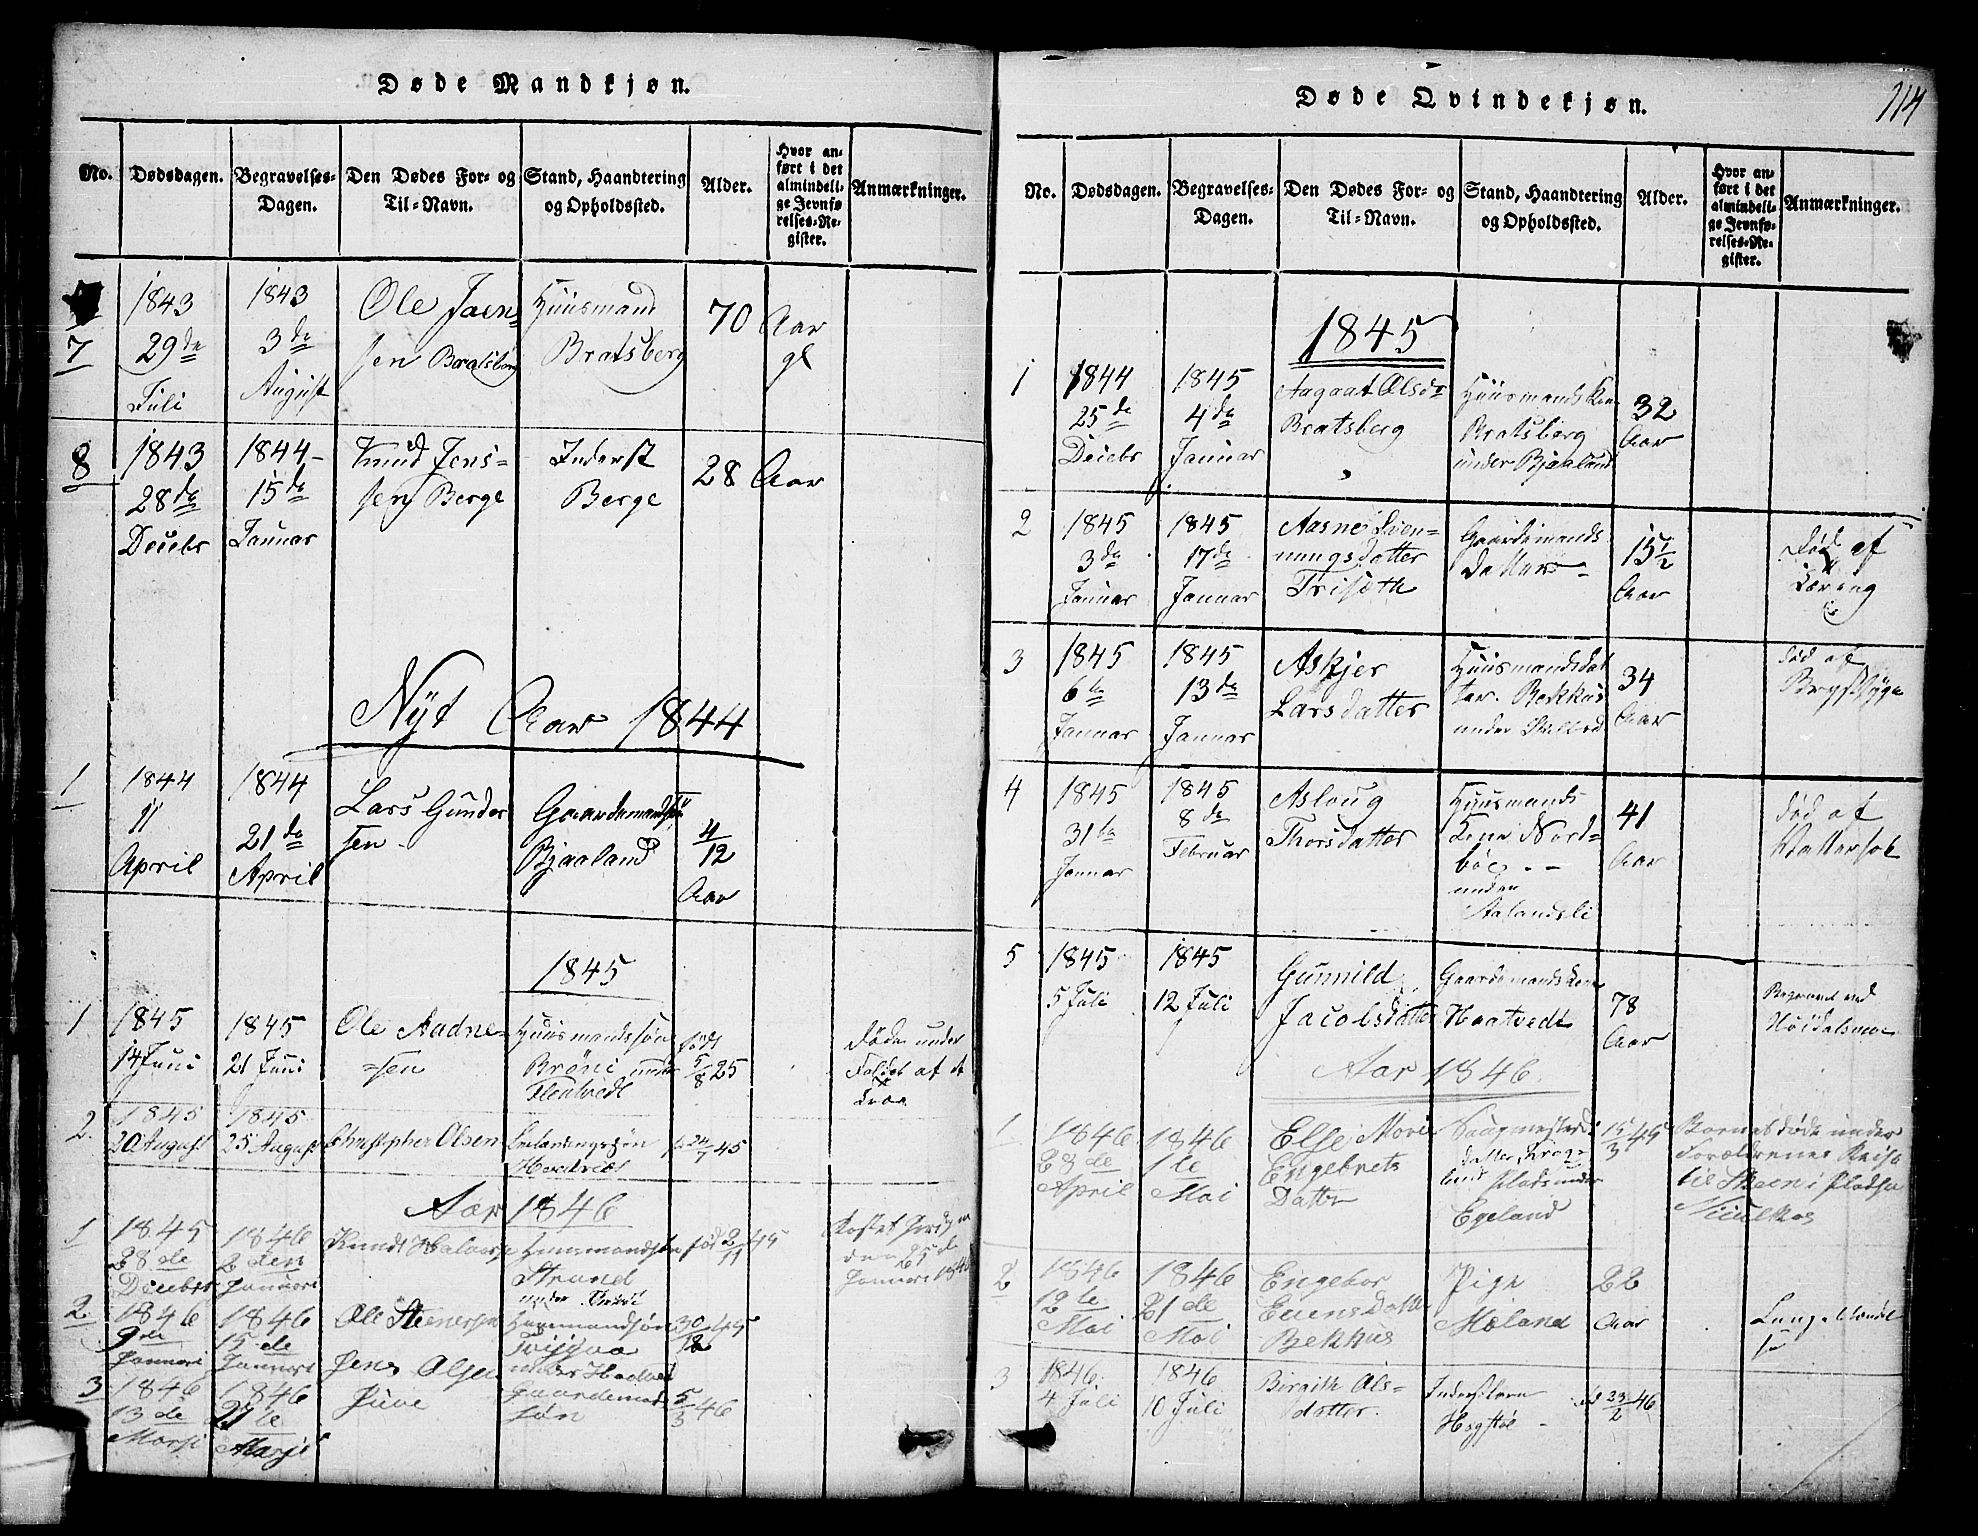 Døde Mandkjøn.
No.
Dødsdagen.
Begravelses-
Dagen.
Den Dødes For- og
Til-Navn.
Stand, Haandtering
og Opholdssted.
Alder.
Hvor an-
ført i det
almindeli-
ge Jevnfø-
relses-Re-
gister.
Anmærkninger.
7
1843
29de
Juli
1843
3de
August
Ole Jaen-
sen Bratsberg
Huusmand
Bratsberg
70 Aar
gl
8
1843
28de
Decebr
1844
15de
Januar
Knud Jens-
sen Berge
Inderst
Berge
28 Aar
Nyt Aar 1844
1
1844
11
April
1844
21de
April
Lars Gunder
sen
Gaardemands
Bjaaland
4/12
Aar
1845
1
1845
14 Juni
1845
21 Juni
Ole Aadne-
sen
Huusmandssøn
Brøni under
Flatvedt
født
5/8 25
Døde under
af et
Træe
2.
1845
20 August
1845
25 August
Christopher Olsen
søn
f. 24/7 45
Aar 1846
1
1845
28de
Decebr
1846
2den
Januari
Knudt Halvors
Huusmandsøn
Strand
under
født 2/11 45
den 25de
Januari 1846
2
1846
9de
Januari
1846
15de
Januari
Ole Steenersen
Huusmandsøn
under
30/12 45
3
1846
13de
Marsi
1846
21te
Marsji
Jens Olsen
Juve
Gaardemands
søn
5/3 46
114
Døde Qvindekjøn.
No.
Dødsdagen.
Begravelses-
Dagen.
Den Dødes For- og
Til-Navn.
Stand, Haandtering
og Opholdssted.
Alder.
Hvor an-
ført i det
almindeli-
ge Jevnfø-
relses-Re-
gister.
Anmærkninger.
1845
1
1844
25de
Decebr
1845
4de
Januar
Aagaat Olsdr
Bratsberg
Huusmands Kone
Bratsberg
under Bjaaland
32
Aar
2
1845
3de
Januar
1845
17de
Januar
Aasne Sven-
nungsdatter
Trisæth
Gaardemands
Datter
15 1/2
Aar
Død af
Tæring
3
1845
6te
Januar
1845
13de
Januar
Askjer
Larsdatter
Huusmandsdat
ter. Bekkhus
under
34
Aar
død af
Brystsyge
4
1845
31te
Januar
1845
8de
Februar
Aslaug
Thorsdatter
Huusmands
Kone Nord-
böe
under
Aalandslie
41
Aar
død af
Vattersot
5
1845
5 Juli
1845
12 Juli
Gunnild
Jacobsdatter
Gaardemandskone
Haatvedt
78
Aar
Begravet ved
Høidalsmoe
Aar 1846
1
1846
28de
April
1846
1te
Mai
Else Marie
Engebrets
Datter
Datter
Plads under
Egeland
15/3 45
Barnet døde under
Forældrenes Reise
til Skeen
2
1846
12te
Mai
1846
21de
Mai
Engebor
Evens Datter
Bekkhus
Pige
Moland
22
Aar
Lungebetændel
se
3
1846
4 Juli
1846
10 Juli
Birgith Ols-
datter
Inderstbarn
Hegstøl
23/2 46